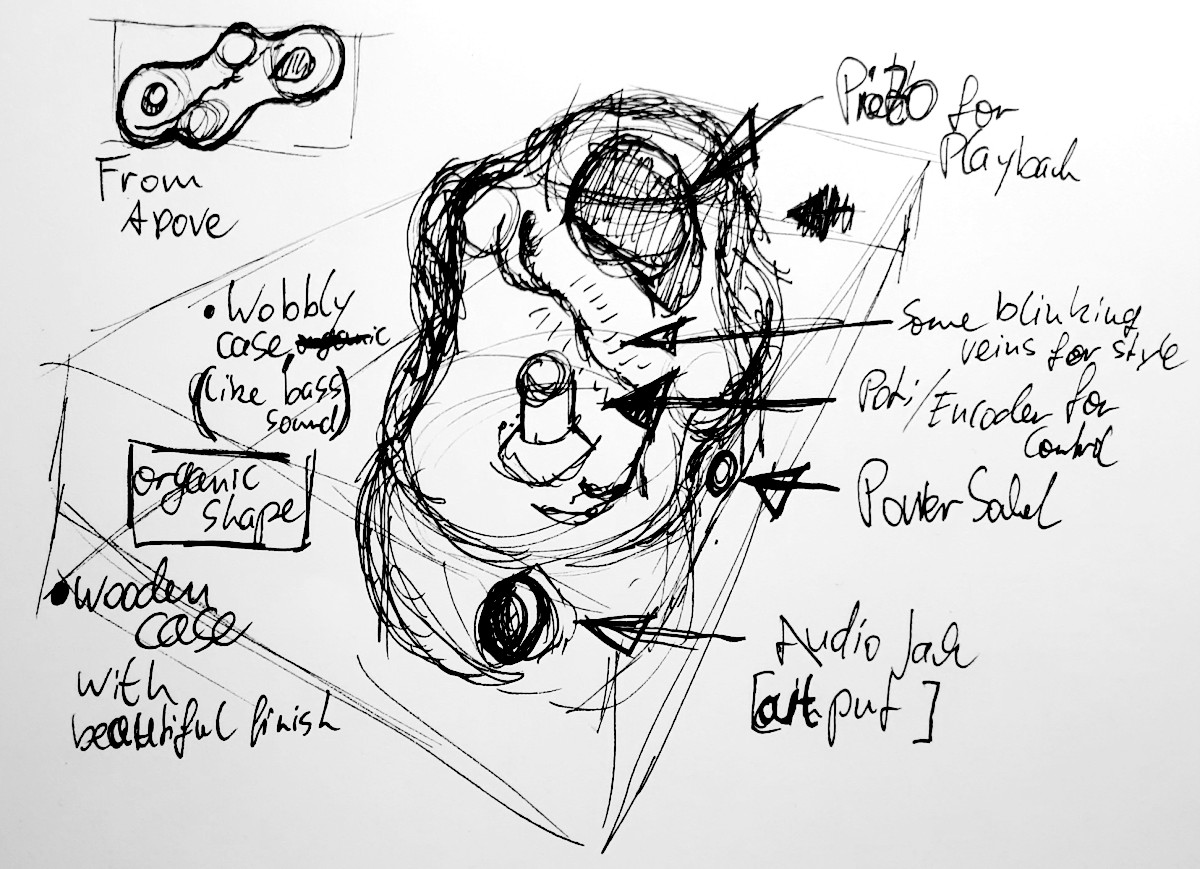 From
Apove
• Wobbly
case,
(like bass
sound)
organic
shape
• wooden
case
with
beautiful finish
Piezo for
Playback
Some blinking
veins for style
Poti/Encoder for
Control
Power
Audio Jack
[output]